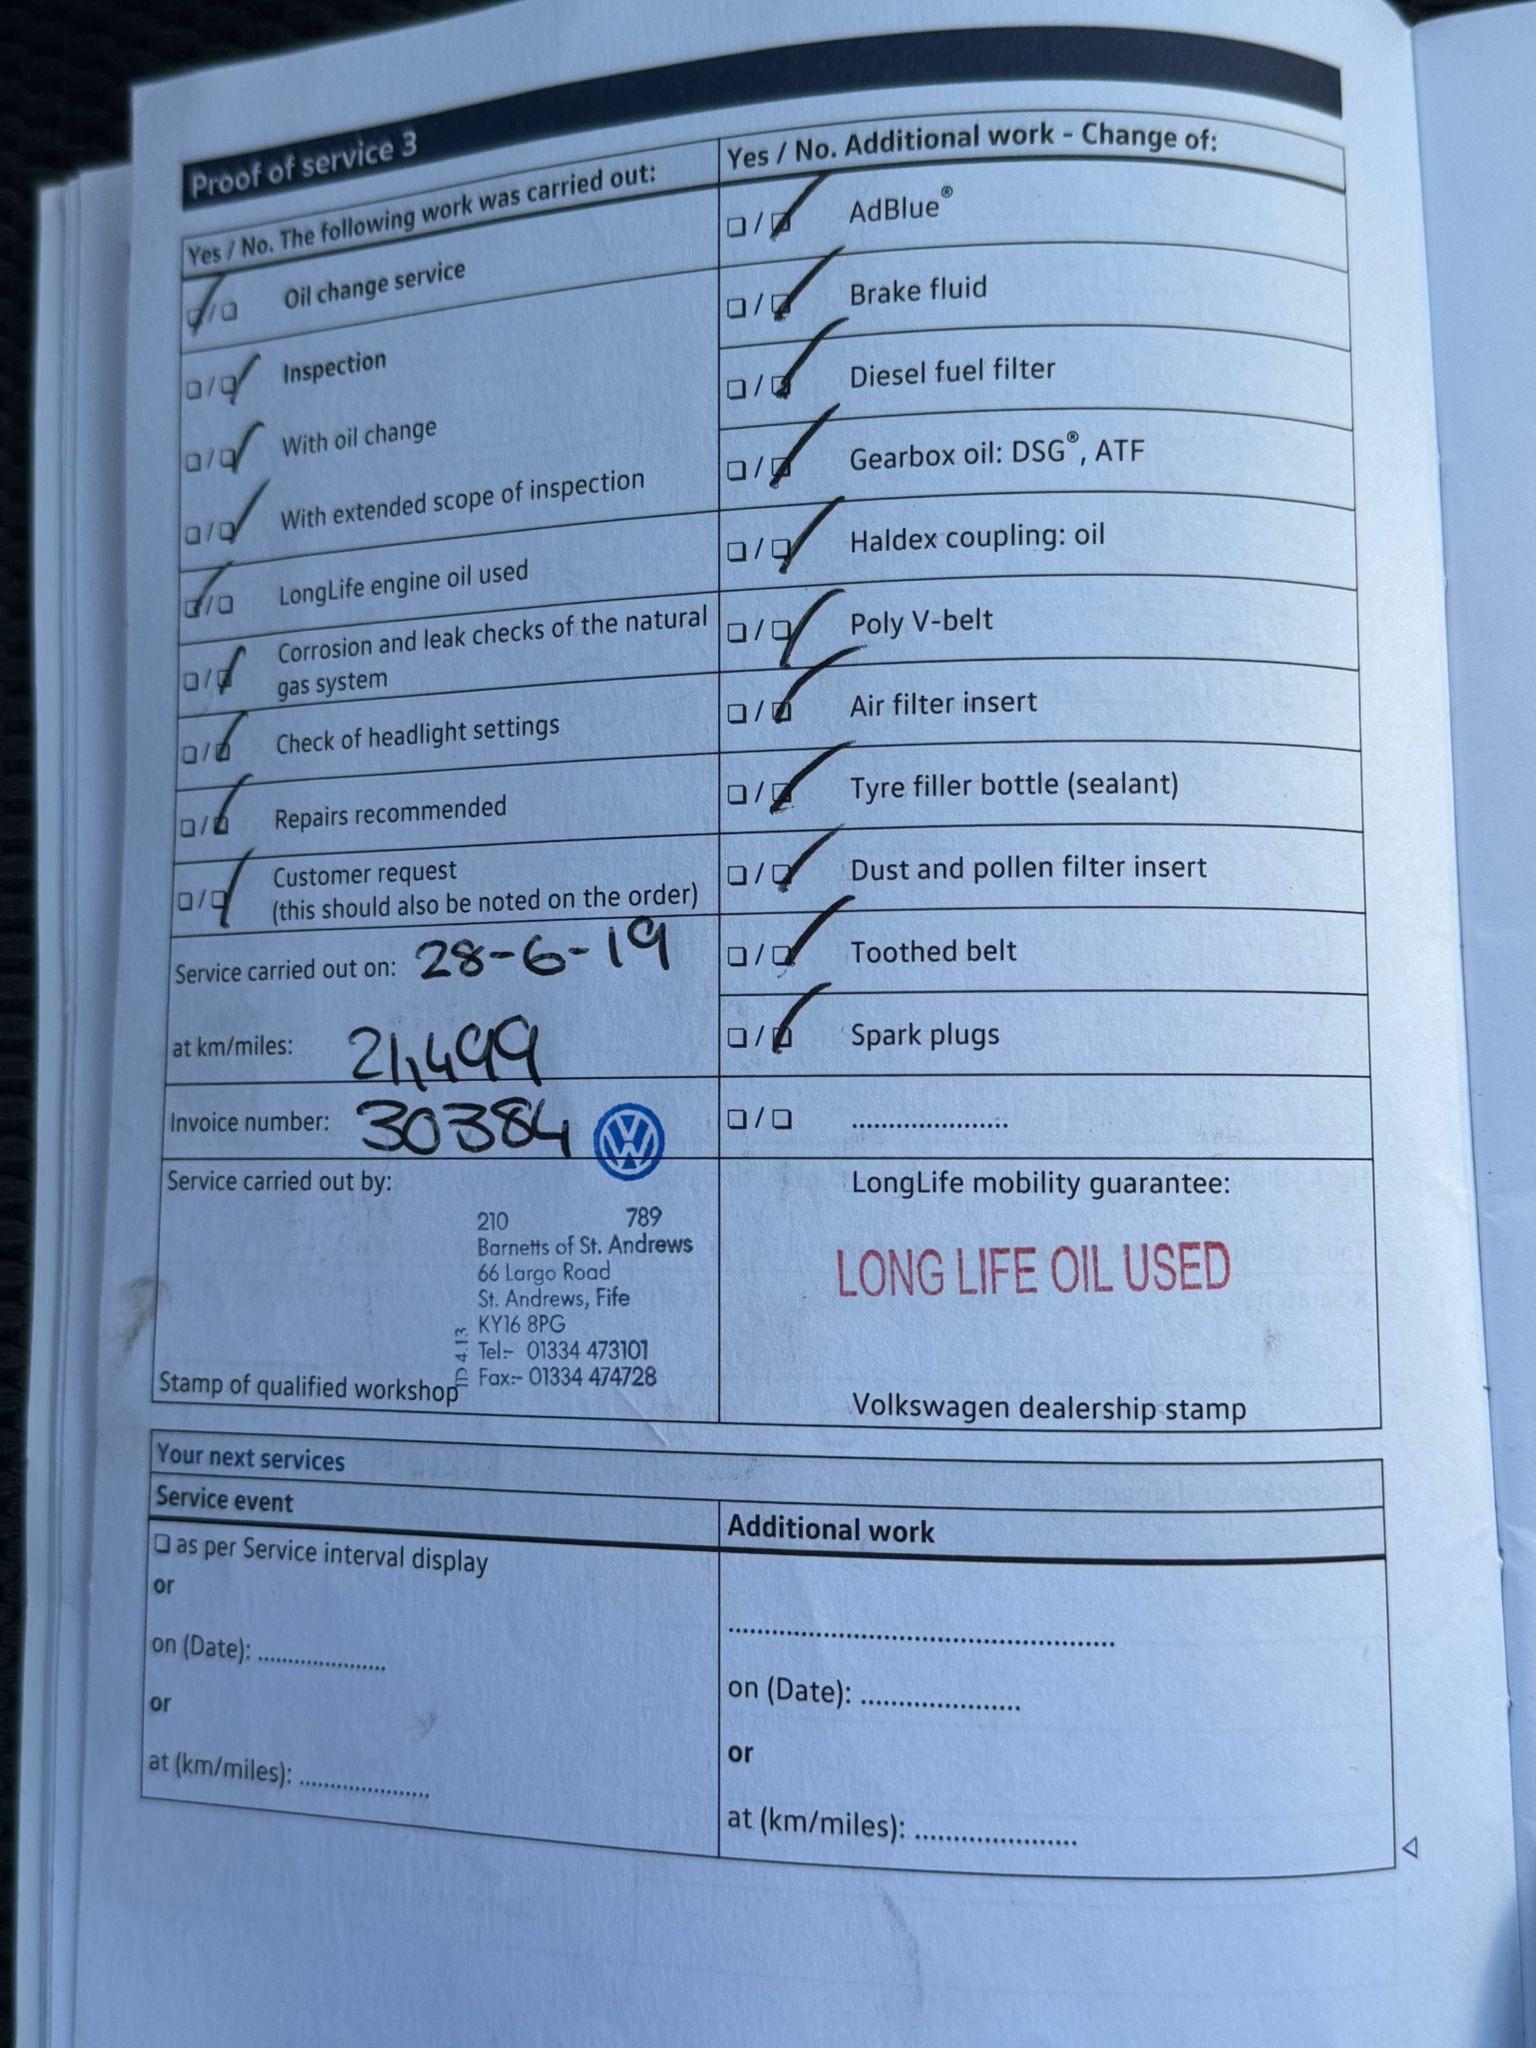 Proof of service 3
Yes / No. The following work was carried out:
Oil change service
Inspection
With oil change
With extended scope of inspection
LongLife engine oil used
Corrosion and leak checks of the natural
gas system
Check of headlight settings
Repairs recommended
Customer request
(this should also be noted on the order)
Service carried out on: 28-6-19
at km/miles: 21,499
Invoice number: 30384
Service carried out by:
210 789
Barnetts of St. Andrews
66 Largo Road
St. Andrews, Fife
KY16 8PG
Tel:- 01334 473101
Fax:- 01334 474728
ID 4.13
Stamp of qualified workshop
Yes / No. Additional work - Change of:
AdBlue®
Brake fluid
Diesel fuel filter
Gearbox oil: DSG®, ATF
Haldex coupling: oil
Poly V-belt
Air filter insert
Tyre filler bottle (sealant)
Dust and pollen filter insert
Toothed belt
Spark plugs
.....................
LongLife mobility guarantee:
LONG LIFE OIL USED
Volkswagen dealership stamp
Your next services
Service event
as per Service interval display
or
on (Date): .....................
or
at (km/miles): .....................
Additional work
.....................................................
on (Date): .....................
or
at (km/miles): .....................